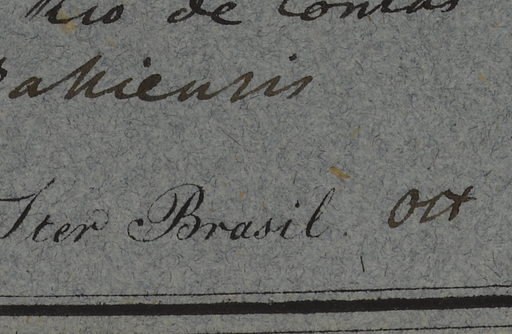 Rio de Contas
Bahiensis
Iter Brasil. Oct